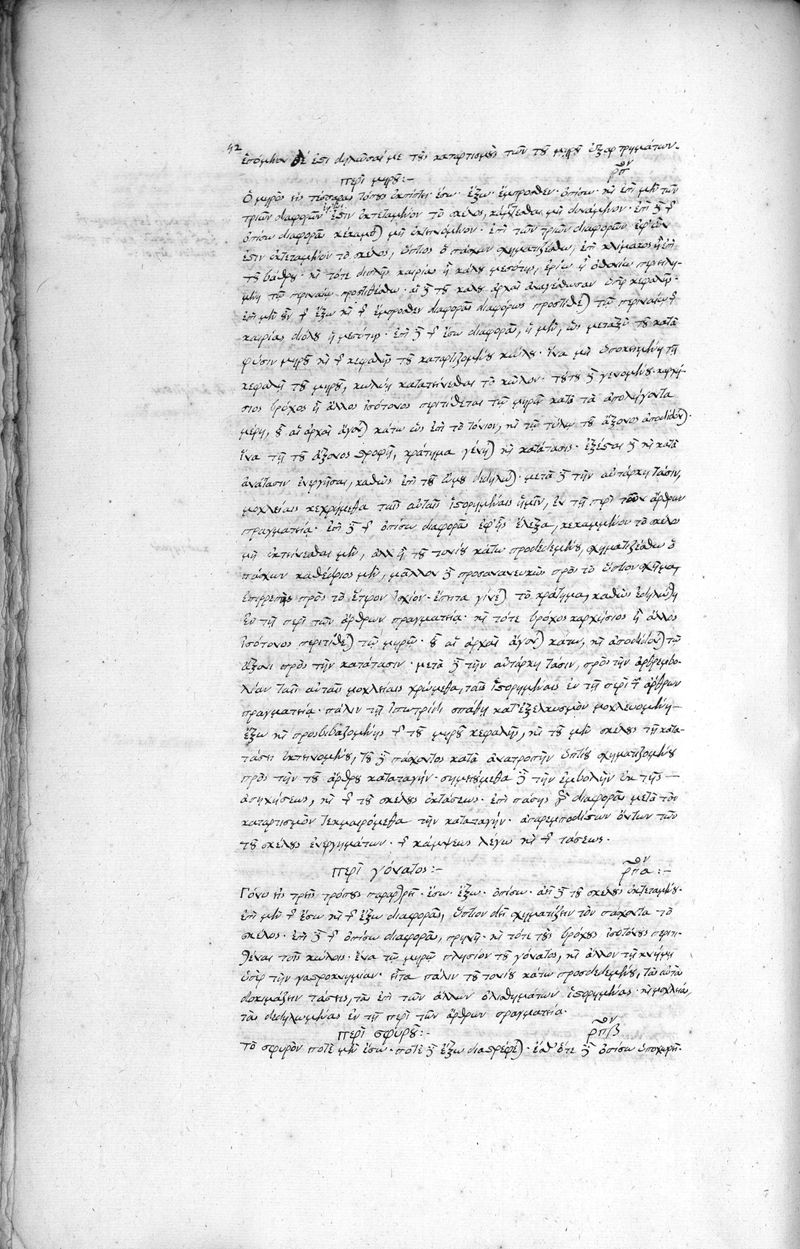 42
ἑπόμενον δέ ἐστι δηλῶσαί με τοὺς καταρτισμοὺς τῶν τοῦ μηροῦ ἐξαρθρημάτων.
περὶ μηροῦ:- ρπον
Ὁ μηρὸς εἰς τέσσαρας τόπους ἐκπίπτει· ἔσω· ἔξω· ἔμπροσθεν· ὀπίσω· καὶ ἐπὶ μὲν τῶν
τριῶν διαφορῶν ἐστιν ἐκτεταμένον τὸ σκέλος, κάμπτεσθαι μὴ δυνάμενον· ἐπὶ δὲ τῆς
ὀπίσω διαφορᾶς κέκαμπται μὴ ἐκτεινόμενον· ἐπὶ τῶν τριῶν διαφορῶν ἐφ' ὧν
ἐστιν ἐκτεταμένον τὸ σκέλος, ὕπτιος ὁ πάσχων σχηματιζέσθω, ἐπὶ κλίματος ἢ ἐπὶ
τοῦ βάθρου· καὶ τότε διπλῆς καιρίας ἢ κάλου μεσότης, ἐρίῳ ἢ ὀθονίῳ περιειλη-
μένη τῷ περιναίῳ προστιθέσθω· αἱ δὲ τοῦ κάλου ἀρχαὶ ἀναγέσθωσαν ὑπὲρ κεφαλῆς·
ἐπὶ μὲν οὖν τῆς ἔξω καὶ τῆς ἔμπροσθεν διαφορᾶς διαφόρως προστίθεται τῷ περιναίῳ τῆς
καιρίας διόλου ἡ μεσότης· ἐπὶ δὲ τῆς ἔσω διαφορᾶς, ἡ μὲν, ὡς μεταξὺ τοῦ κατὰ
φύσιν μηροῦ καὶ τῆς κεφαλῆς τοῦ καταρτιζομένου κώλου· ἵνα μὴ ὑποκειμένη τῇ
κεφαλῇ τοῦ μηροῦ, κωλύῃ κατατείνεσθαι τὸ κῶλον· τούτου δὲ γενομένου καρχή-
σιος βρόχος ἢ ἄλλος ἰσότονος περιτίθεται τῷ μηρῷ κατὰ τὰ ἀπολήγοντα
μέρη, οὗ αἱ ἀρχαὶ ἄγονται κάτω ὡς ἐπὶ τὸ τόνιον, καὶ τῷ τύλῳ τοῦ ἄξονος ἀποδίδονται·
ἵνα τῇ τοῦ ἄξονος στροφῇ, κράτημα γένηται καὶ κατάτασις· ἔξεστι δὲ καὶ κατὰ
ἀνάτασιν ἐνεργῆσαι, καθὼς ἐπὶ τοῦ ὤμου δεδήλωται· μετὰ δὲ τὴν αὐτάρκη τάσιν,
μοχλείαις κεχρήμεθα ταῖς αὐταῖς ἱστορημέναις ἡμῖν, ἐν τῇ περὶ τῶν ἄρθρων
πραγματείᾳ· ἐπὶ δὲ τῆς ὀπίσω διαφορᾶς ἐφ' ἧς ἔλεξα, κεκαμμένον τὸ σκέλος
μὴ ἐκτείνεσθαι μὲν, ἀλλ' ἢ τοῦ τονίου κάτω προσδεδεμένου, σχηματιζέσθω ὁ
πάσχων καθέδριος μὲν, μᾶλλον δὲ προσανανενευκὼς πρὸς τὸ ὕπτιον σχῆμα,
ἐπιρρεπὴς πρὸς τὸ ἕτερον ἰσχίον· ἔπειτα γίνεται τὸ κράτημα, καθὼς ἐδηλώθη
ἐν τῇ περὶ τῶν ἄρθρων πραγματείᾳ· καὶ τότε βρόχος καρχήσιος ἢ ἄλλος
ἰσότονος περιτίθεται τῷ μηρῷ· οὗ αἱ ἀρχαὶ ἄγονται κάτω, καὶ ἀποδίδονται τῷ
ἄξονι πρὸς τὴν κατάτασιν· μετὰ δὲ τὴν αὐτάρκη τάσιν, πρὸς τὴν ἀρθρεμβο-
λίαν ταῖς αὐταῖς μοχλείαις χρώμεθα, ταῖς ἱστορημέναις ἐν τῇ περὶ τῶν ἄρθρων
πραγματείᾳ· πάλιν τῇ σπάθῃ κατ' ἐξελκυσμὸν μοχλευομένῃ-
ἔξω καὶ προσβιβαζομένης τῆς τοῦ μηροῦ κεφαλῆς, καὶ τοῦ μὲν σκέλους τῇ κατα-
τάσει ἐκτεινομένου, τοῦ δὲ πάσχοντος κατὰ ἀνατροπὴν ὑπτίου σχηματιζομένου
πρὸς τὴν τοῦ ἄρθρου καταταγήν· σημειούμεθα δὲ τὴν ἐμβολὴν ἐκ τῆς -
ἀπηχήσεως, καὶ τῆς τοῦ σκέλους ἐκτάσεως· ἐπὶ πάσης δὲ διαφορᾶς μετὰ τὸν
καταρτισμὸν τεκμαιρόμεθα τὴν καταταγήν· ἀπαρεμποδίστων ὄντων τῶν
τοῦ σκέλους ἐνεργημάτων· τῆς κάμψεως λέγω καὶ τῆς τάσεως.
περὶ γόνατος:- ρπαον:-
Γόνυ εἰς τρεῖς τρόπους παραρθρεῖ· ἔσω· ἔξω· ὀπίσω· ἀεὶ δὲ τοῦ σκέλους ἐκτεταμένου·
ἐπὶ μὲν τῆς ἔσω καὶ τῆς ἔξω διαφορᾶς, ὕπτιον δεῖ σχηματίζειν τὸν πάσχοντα τὸ
σκέλος· ἐπὶ δὲ τῆς ὀπίσω διαφορᾶς, πρηνῆ· καὶ τότε τοὺς βρόχους ἰσοτόνους περιτι-
θέναι τοῖς κώλοις· ἕνα τῷ μηρῷ πλησίον τοῦ γόνατος, καὶ ἄλλον τῇ κνήμῃ
ὑπὲρ τὴν γαστροκνημίαν· εἶτα πάλιν τοῦ τονίου κάτω προσδεδεμένου, τὰς αὐτὰς
δοκιμάζειν τάσεις, τὰς ἐπὶ τῶν ἄλλων ὀλισθημάτων ἱστορημένας· καὶ μοχλείας,
τὰς δεδηλωμένας ἐν τῇ περὶ τῶν ἄρθρων πραγματείᾳ.
περὶ σφυροῦ:- ρπβον
τὸ σφυρὸν ποτὲ μὲν ἔσω· ποτὲ δὲ ἔξω διαστρέφεται· ἔσθ' ὅτε δὲ ὀπίσω ὑποχωρεῖ·